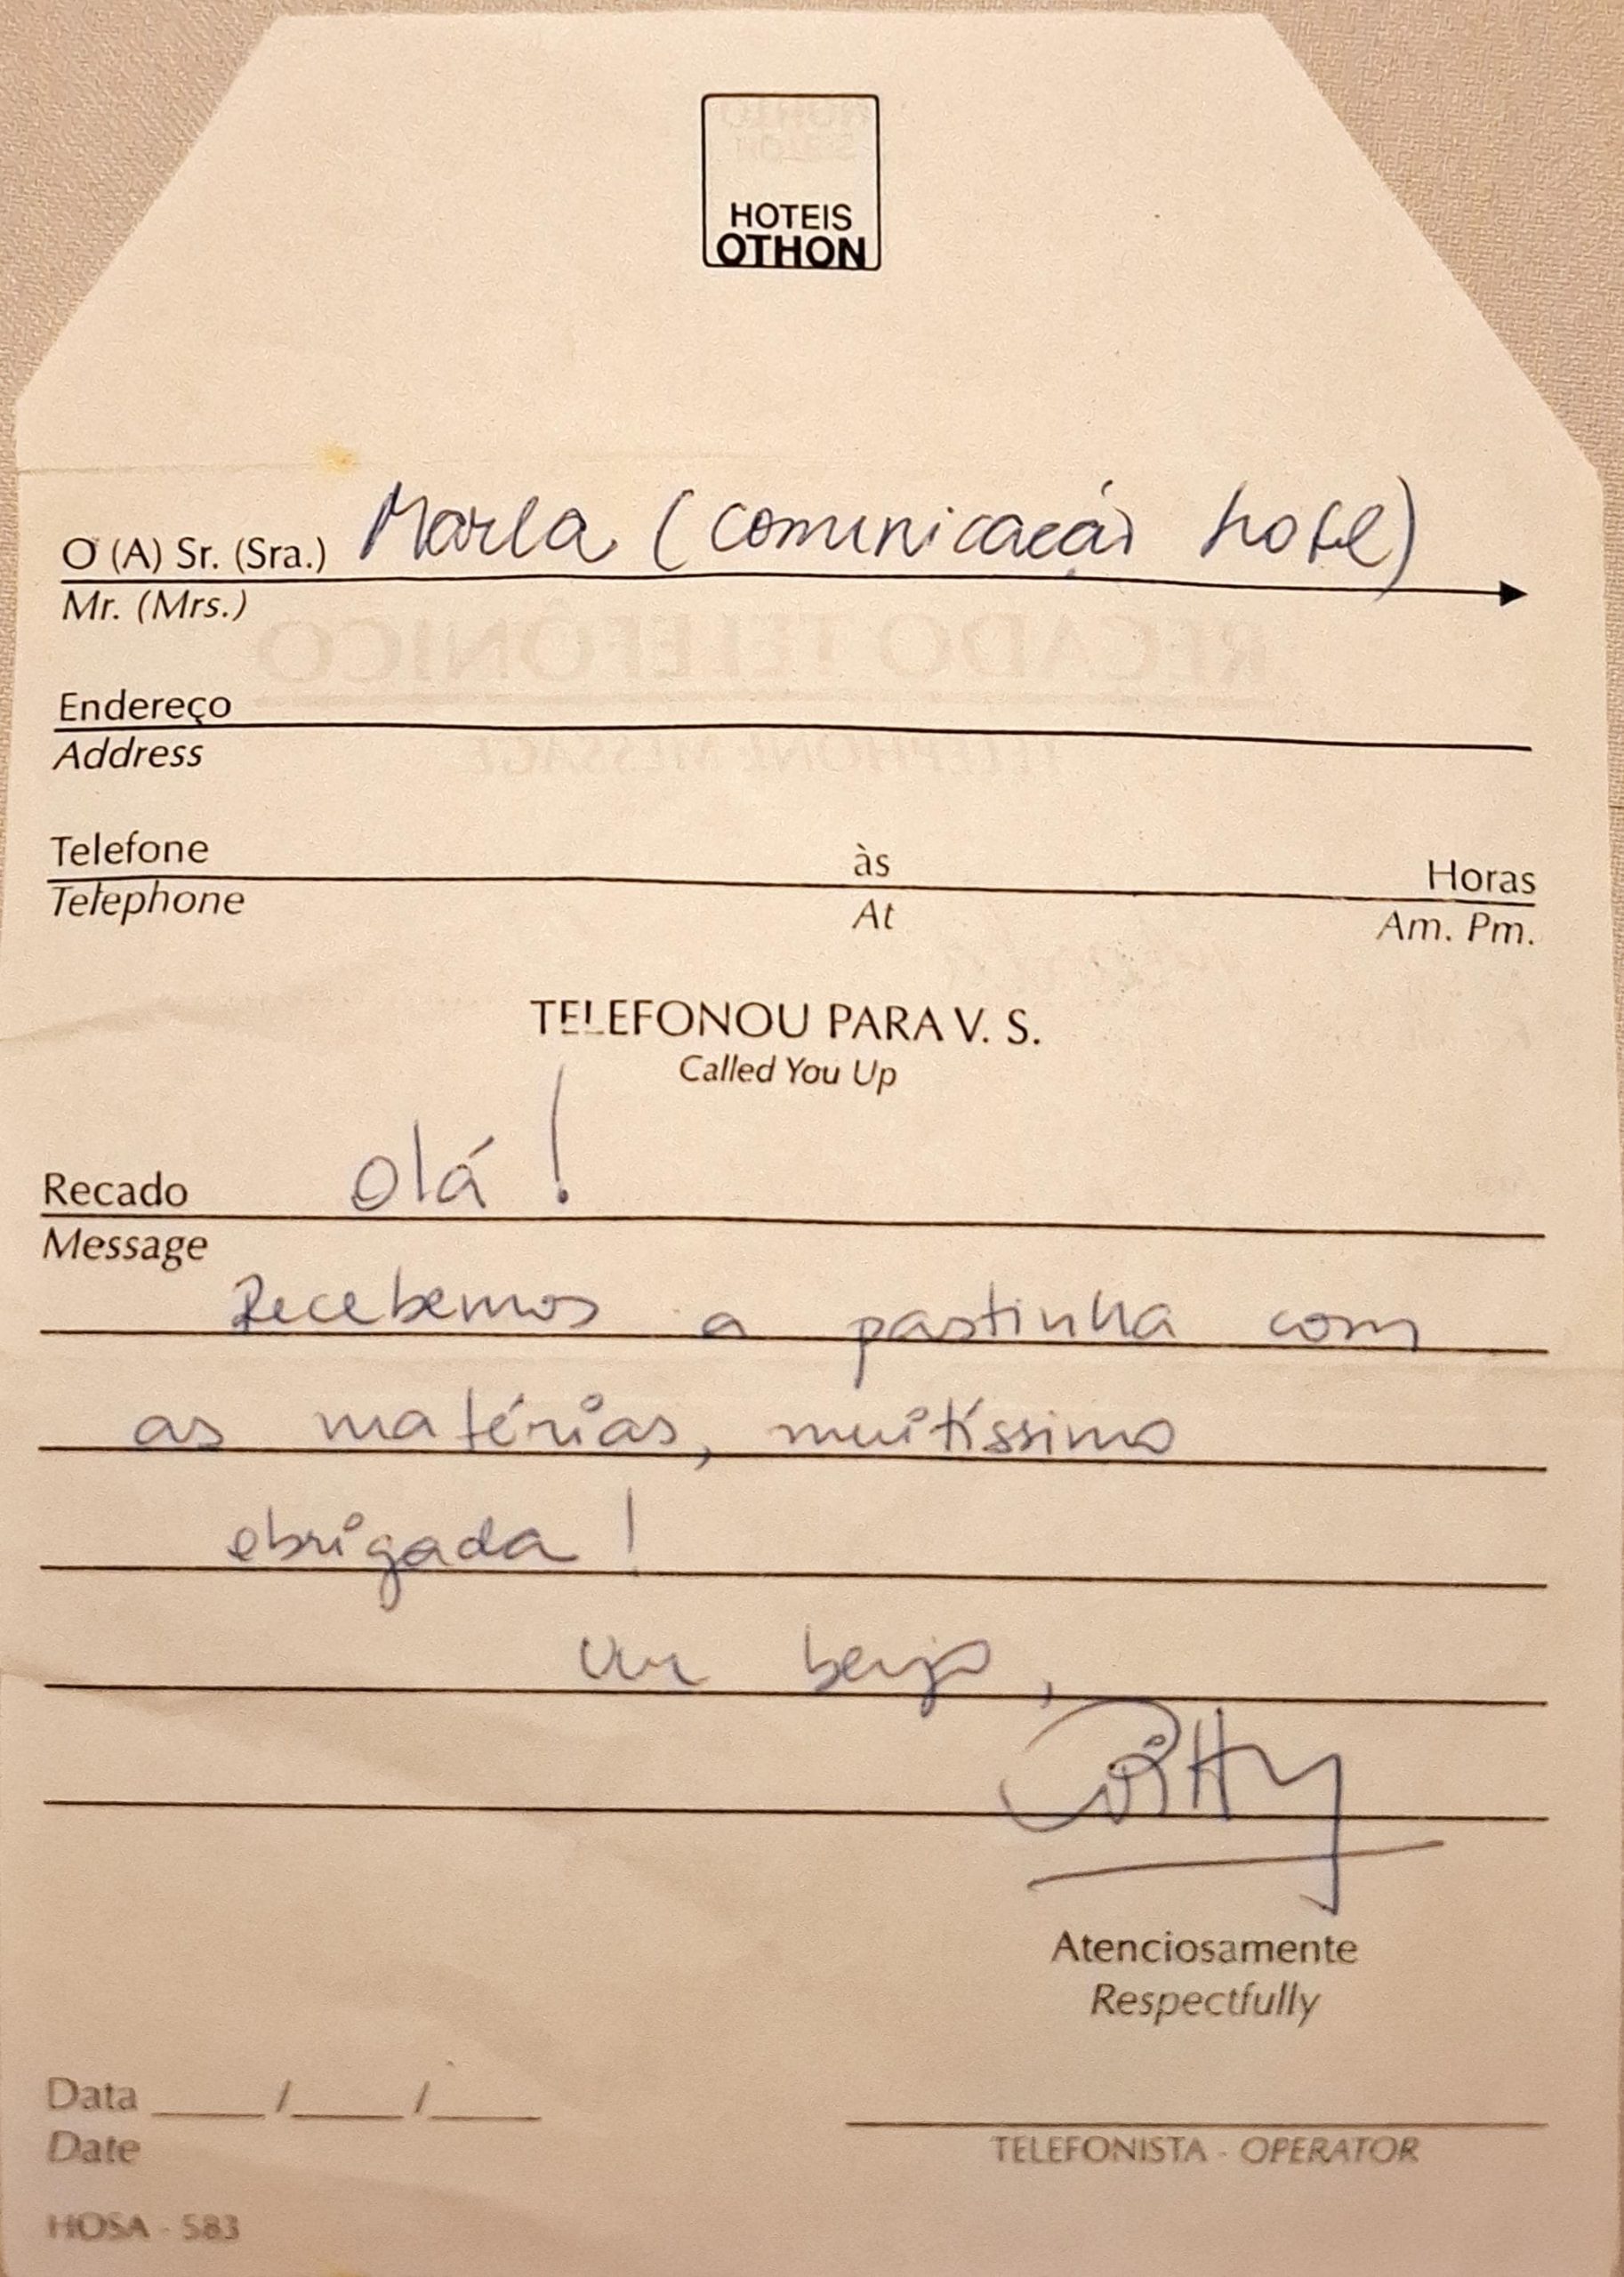 HOTEIS
OTHON
O (A) Sr. (Sra.) Marla (comunicação hotel)
Mr. (Mrs.)
RECADO TELEFÔNICO
Endereço
Address
TELEPHONE MESSAGE
Telefone às Horas
Telephone At Am. Pm.
TELEFONOU PARA V. S.
Called You Up
Recado olá!
Message
Recebemos a pastinha com
as matérias, muitíssimo
obrigada!
Um beijo,
Pitty
Atenciosamente
Respectfully
Data ____/____/____
Date
TELEFONISTA - OPERATOR
HOSA - 583